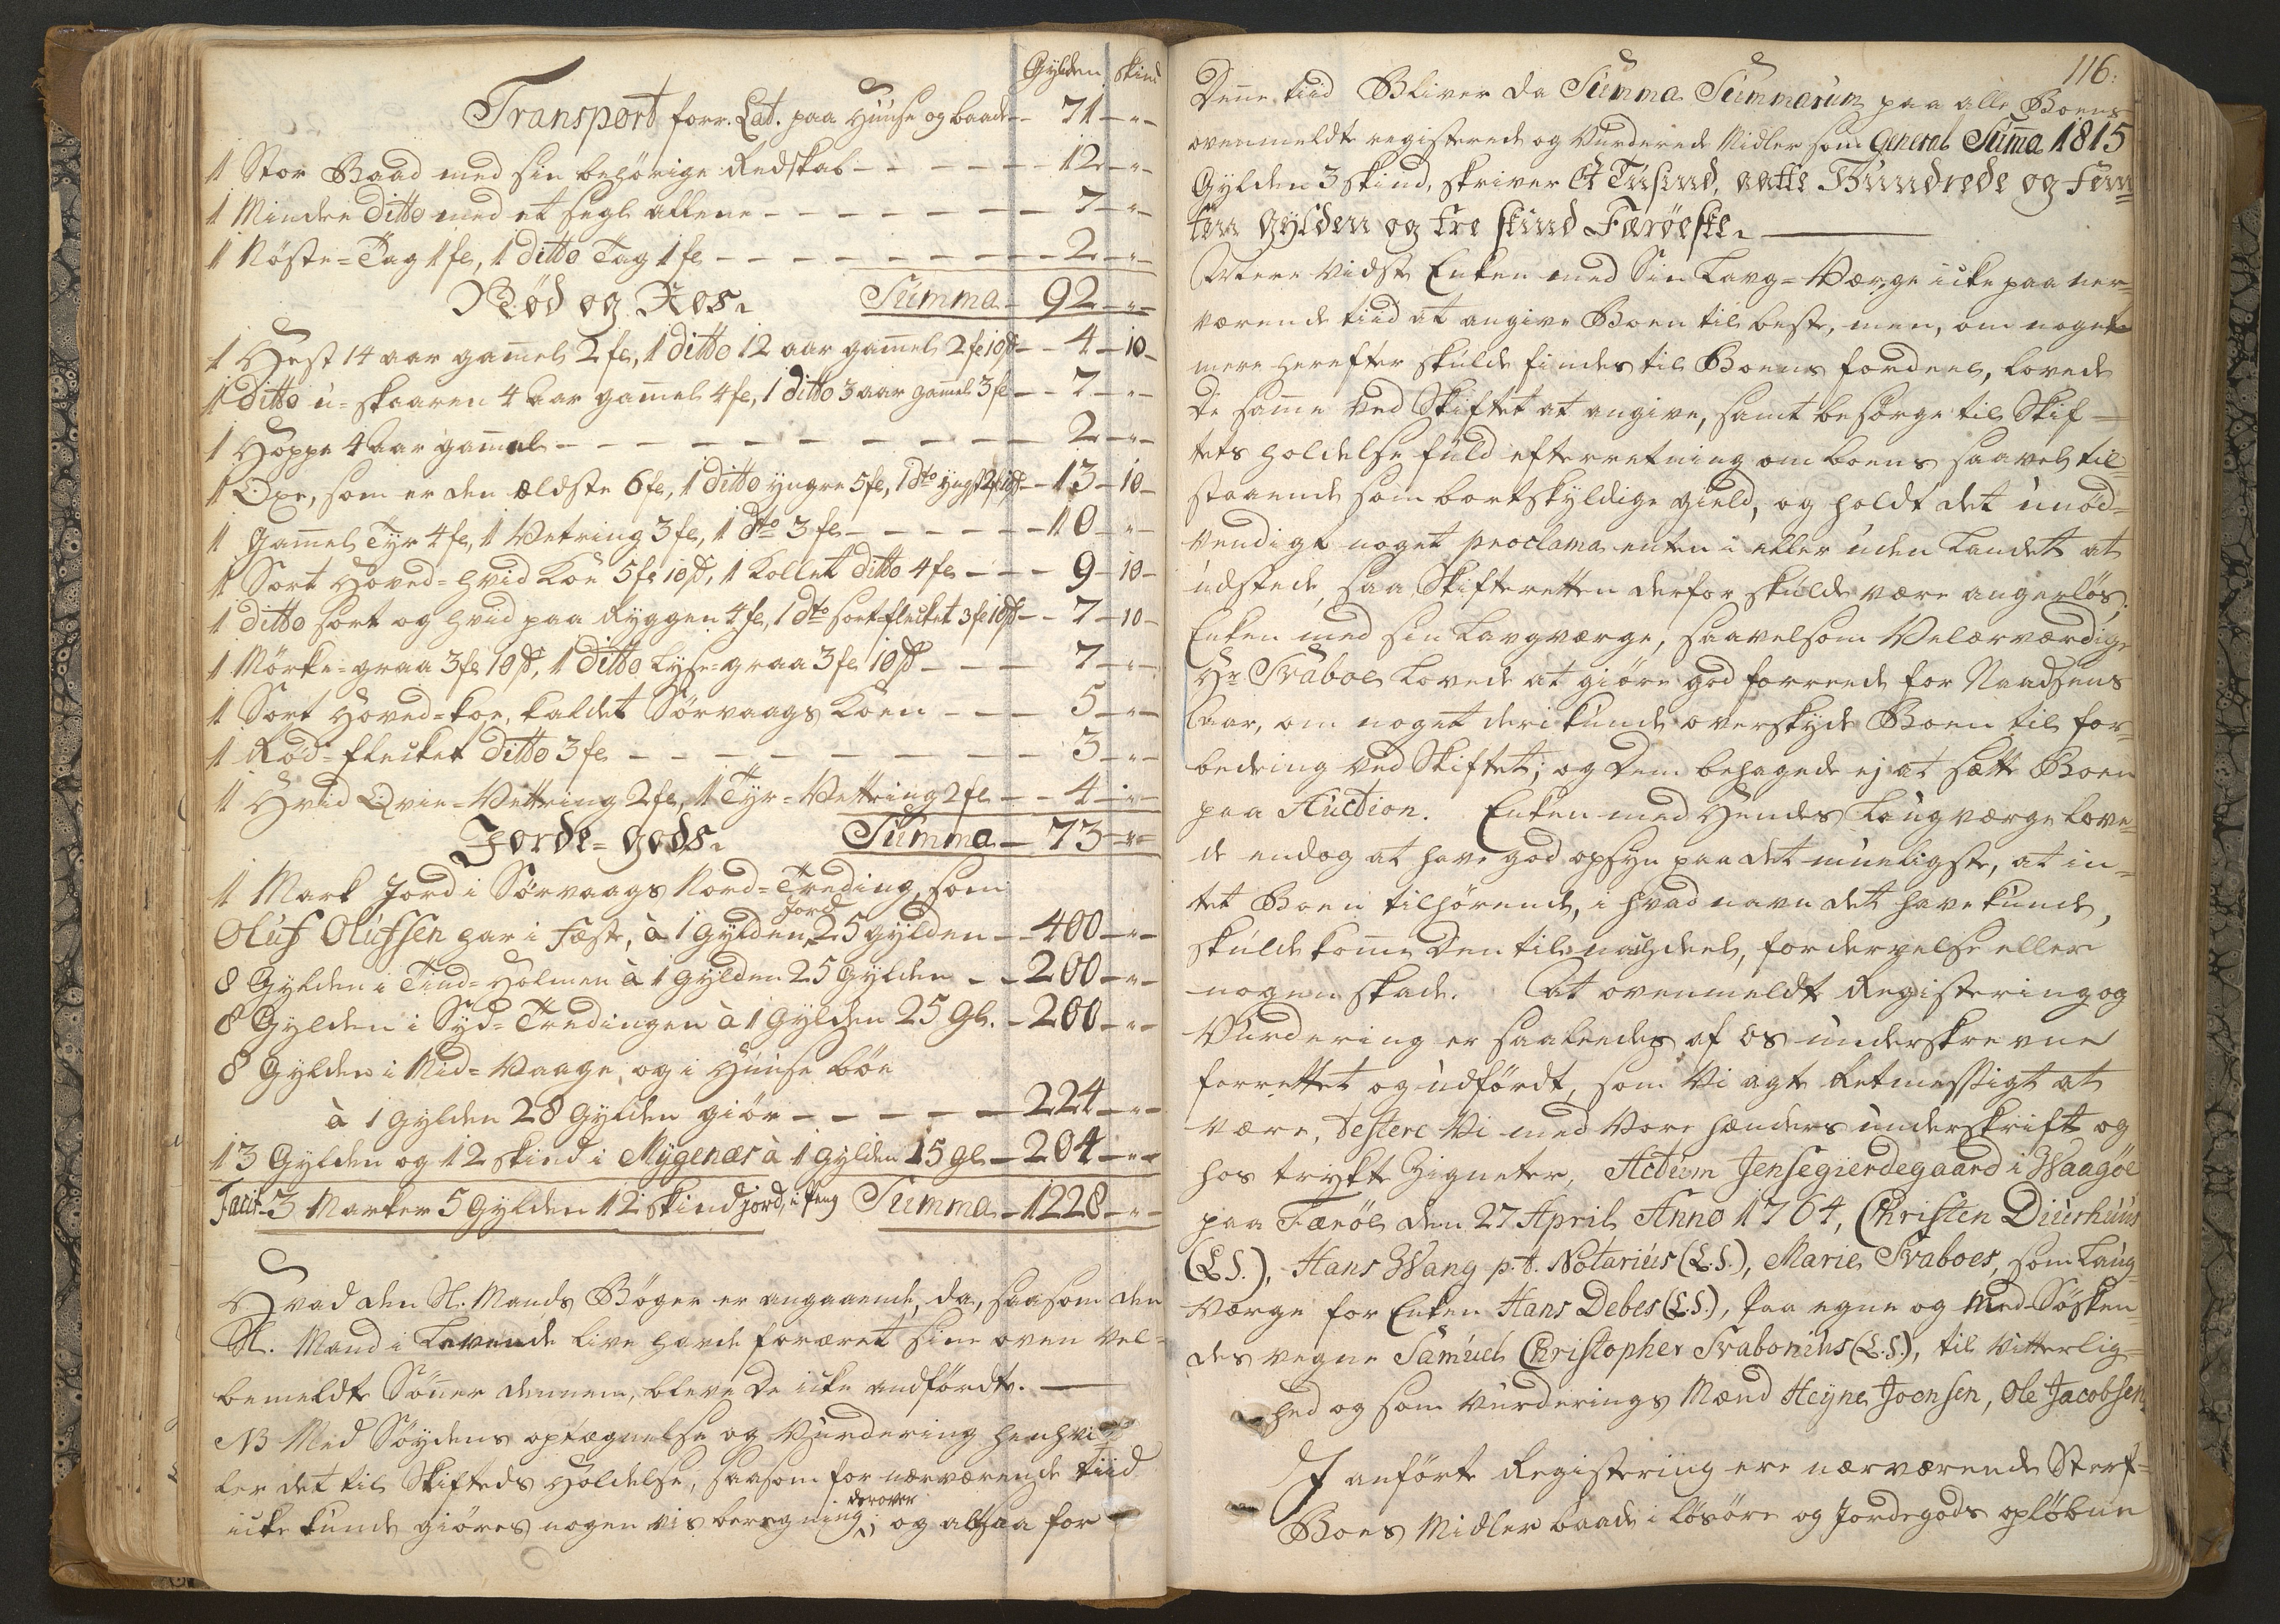 Gylden skind
Transport forr. Lat. paa Huuse og baade - 71 - " -
1 Stor Baad med sin behørige Redskab - 12 - " -
1 Mindre Ditto med et segl allene - 7 - " -
1 Nøste-Tag 1 fe, 1 ditto Tag 1 fe - 2 - " -
Summa - 92 - " -
1 Hest 14 aar gamel 2 fe, 1 ditto 12 aar gamel 2 fe 10 ß - 4 - 10 -
1 ditto u-skaaren 4 aar gamel 4 fe, 1 ditto 3 aar gamel 3 fe - 7 - " -
1 Hoppe 4 aar gamel - 2 - " -
1 Oxe, som er den ældste 6 fe, 1 ditto yngre 5 fe, 1 dto yngst 2 fe 10 ß - 13 - 10 -
1 Gamel Tyr 4 fe, 1 Vetring 3 fe, 1 dto 3 fe - 10 - " -
1 Sort Hoved-hvid Koe 5 fe 10 ß, 1 Kollet ditto 4 fe - 9 - 10 -
1 ditto sort og hvid paa Ryggen 4 fe, 1 dto sort-flecket 3 fe 10 ß - 7 - 10 -
1 Mörke-graa 3 fe 10 ß, 1 ditto Lyse-graa 3 fe 10 ß - 7 - " -
1 Sort Hoved-koe, kaldet Sörvaags Koen - 5 - " -
1 Rød-flecket ditto 3 fe - 3 - " -
1 Hvid Qvie-Vettring 2 fe, 1 Tyr-Vettring 2 fe - 4 - " -
Jorde-gods. Summa - 73 - " -
1 Mark Jord i Sörvaags Nord-Treding, som
Oluf Olufsen har i fæste, à 1 Gylden Jord 25 gylden - 400 - " -
8 Gylden i Tind-Holmen à 1 gylden 25 Gylden - 200 - " -
8 Gylden i Syd-Tredingen à 1 gylden 25 Gl. - 200 - " -
8 Gylden i Mid-Vaage, og i Huuse böe
à 1 gylden 28 Gylden giör - 224 - " -
13 Gylden og 12 skind i Mygenæs à 1 gylden 15 gl - 204 - " -
Facit 3 Marker 5 Gylden 12 skind jord, i Peng Summa - 1228 - " -
Hvad den Sl. Mands Bøger er angaaende, da, saasom den
Sl. Mand i Levende live havde foræret sine oven vel-
bemeldte Sönner dennem, bleve de icke andfördte.
NB Med Søydens optægnelse og Vurdering henhvi-
ler det til Skifteds Holdelse, saasom for nærværende tiid
icke kunde giøres nogen vis beregning derover; og altsaa for
116.
Denne tiid Bliver da Summa Summarum paa alle Boens
ovenmeldte registerede og Vurderede Midler som General Suma 1815
Gylden 3 skind, skriver Et Tusind, aatte Hundrede og Fem-
ten Gylden og tre skind Færöeske.
Mere vidste Enken med Sin Laug-Værge icke paa nær-
værende tiid at angive Boen til beste, men, om noget
mere herefter skulde findes til Boens fordeel, lovede
de same ved Skiftet at angive, samt besørge til Skif-
tets holdelse fuld efterretning om boens saavel til-
staaende som bortskyldige gield, og holdt det unød-
vendigt noget proclama enten i eller uden Landet at
udstede, saa Skifteretten derfor skulde være angerløs.
Enken med sin Laugværge, saavelsom Velærværdige
Hr Svaboe lovede at giöre god forrede for Naadsens
Aar, om noget deri kunde overskyde Boen til for-
bedring ved Skiftet; og Dem behagede ej at sætte Boen
paa Auction. Enken med Hendes Laugværge love-
de endog at have god opsyn paa det mueligste, at in-
tet Boen tilhørende, i hvad navn det have kunde,
skulde kome Den til nachdeel, fordervelse eller
nogen skade. At ovenmeldte Registering og
Vurdering er saaledes af os underskrevne
forrettet og udfördt, som Vi agte Retmessigt at
være, testere Vi med Vore hænders underskrift og
hos trykte Zigneter, Actum Jensegierdegaard i Waagöe
paa Færöe den 27 April Anno 1764, Christen Diurhuus
(L.S.), Hans Wang p.t. Notarius (L.S.), Marie Svaboes, som Laug-
Værge for Enken Hans Debes (L.S.), Paa egne og Med-Söskende-
des vegne Samuel Christopher Svabonius (L.S.), til Vitterlig-
hed og som Vurderings Mænd Heyne Joensen, Ole Jacobsen.
I anførte Registering ere nærværende Sterf-
Boes Midler baade i løsöre og Jordegods opløbne